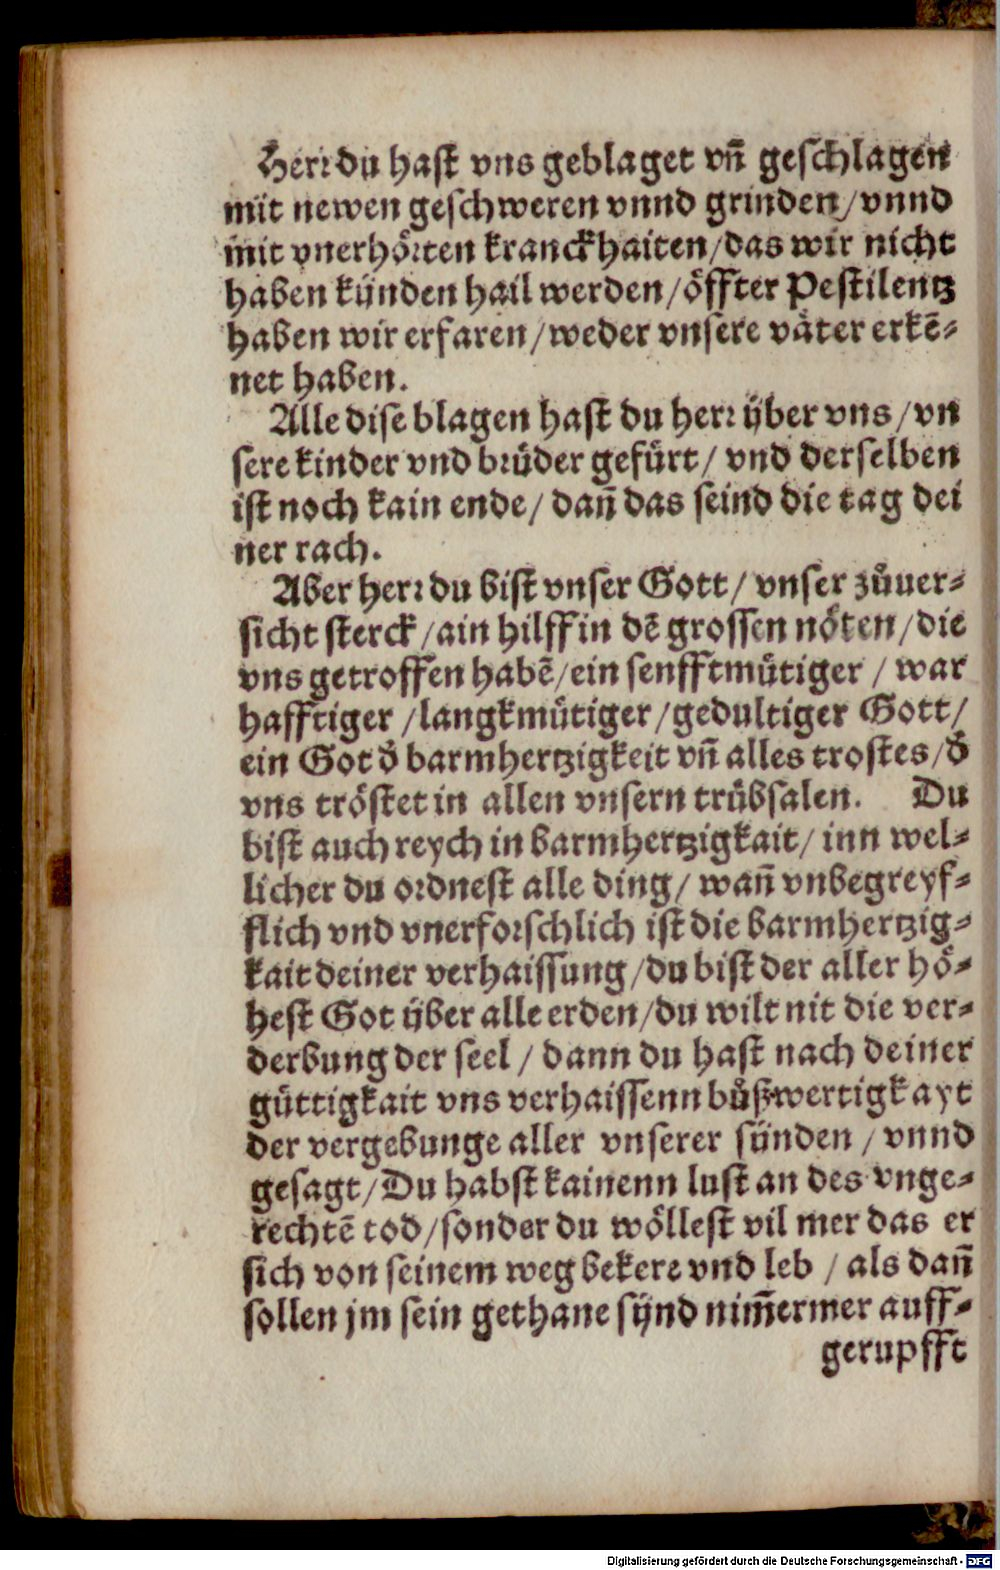 Herr du hast vns geblaget vñ geschlagen
mit newen geschweren vnnd grinden/vnnd
mit vnerhörten kranckhaiten/das wir nicht
haben kÿnden hail werden/öffter Pestilentz
haben wir erfaren/weder vnsere väter erkē-
net haben.
Alle dise blagen hast du herr ÿber vns/vn
sere kinder vnd brüder gefürt/ vnd derselben
ist noch kain ende/ dañ das seind die tag dei
ner rach.
Aber herr du bist vnser Gott/ vnser zůuer-
sicht sterck/ain hilff in dē grossen nöten/die
vns getroffen habē/ein senfftmütiger / war
hafftiger /langkmütiger/gedultiger Gott/
ein Got d̕ barmhertzigkeit vñ alles trostes/d̕
vns tröstet in allen vnsern trübsalen. Du
bist auch reych in barmhertzigkait/ inn wel-
licher du ordnest alle ding/ wañ vnbegreyf-
flich vnd vnerforschlich ist die barmhertzig-
kait deiner verhaissung/du bist der aller hö-
hest Got ÿber alle erden/du wilt nit die ver-
derbung der seel / dann du hast nach deiner
güttigkait vns verhaissenn bůßwertigkayt
der vergebunge aller vnserer sünden / vnnd
gesagt/Du habst kainenn lust an des vnge-
rechtē tod/sonder du wöllest vil mer das er
sich von seinem weg bekere vnd leb / als dañ
sollen jm sein gethane sÿnd nim̄ermer auff-
gerupfft
Digitalisierung gefördert durch die Deutsche Forschungsgemeinschaft - DFG